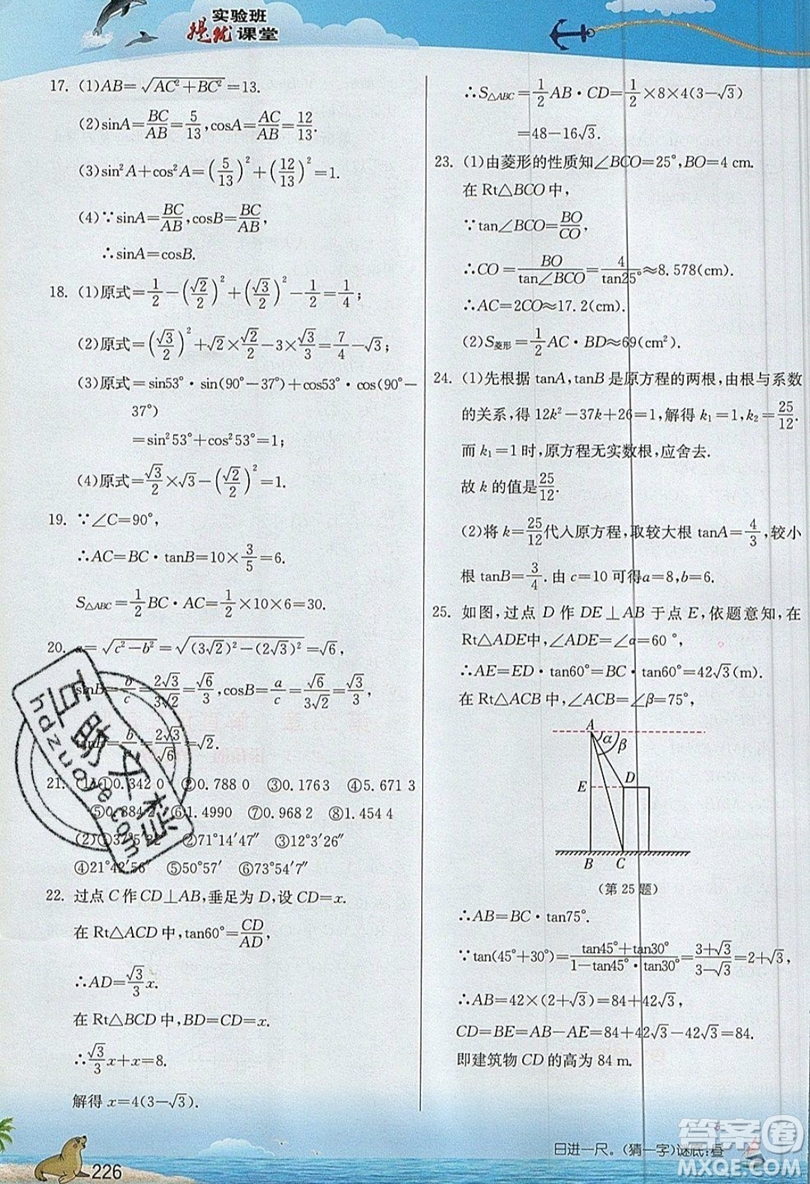 实验班
提优课堂
17. (1)AB=√(AC²+BC²)=13.
(2)sinA=BC/AB=5/13,cosA=AC/AB=12/13.
(3)sin²A+cos²A=(5/13)²+(12/13)²=1.
(4)∵sinA=BC/AB,cosB=BC/AB,
∴sinA=cosB.
18. (1)原式=1/2-(√2/2)²+(√3/2)-1/2=1/4;
(2)原式=(√3/2)²+√2×√2/2-3×√3/3=7/4-√3;
(3)原式=sin53°·sin(90°-37°)+cos53°·cos(90°-
37°)
=sin²53°+cos²53°=1;
(4)原式=√3/2×√3-(√2/2)²=1.
19. ∵∠C=90°,
∴AC=BC·tanB=10×3/5=6.
S△ABC=1/2BC·AC=1/2×10×6=30.
20. =√(c²-b²)=√((3√2)²-(2√3)²)=√6,
sinB=b/c=2√3/3√2=√6/3,cosB=a/c=√6/3√2=√3/3,
=b/a=2√3/√6=√2.
21. (1)①0.342 0 ②0.788 0 ③0.1763 ④5.671 3
⑤0.884 2 ⑥1.4990 ⑦0.968 2 ⑧1.454 4
(2)①37°5′22″ ②71°14′47″ ③12°3′26″
④21°42′56″ ⑤50°57′ ⑥73°54′50″
22. 过点C作CD⊥AB,垂足为D,设CD=x.
在Rt△ACD中,tan60°=CD/AD,
∴AD=√3/3x.
在Rt△BCD中,BD=CD=x.
∴√3/3x+x=8.
解得x=4(3-√3).
226
∴S△ABC=1/2AB·CD=1/2×8×4(3-√3)
=48-16√3.
23. (1)由菱形的性质知∠BCO=25°,BO=4 cm.
在Rt△BCO中,
∵tan∠BCO=BO/CO,
∴CO=BO/tan∠BCO=4/tan25°≈8.578(cm).
∴AC=2CO≈17.2(cm).
(2)S菱形=1/2AC·BD≈69(cm²).
24. (1)先根据tanA,tanB是原方程的两根,由根与系数
的关系,得12k²-37k+26=1,解得k₁=1,k₂=25/12.
而k₁=1时,原方程无实数根,应舍去.
故k的值是25/12.
(2)将k=25/12代入原方程,取较大根tanA=4/3,较小
根tanB=3/4.由c=10可得a=8,b=6.
25. 如图,过点D作DE⊥AB于点E,依题意知,在
Rt△ADE中,∠ADE=∠α=60°,
∴AE=ED·tan60°=BC·tan60°=42√3(m).
在Rt△ACB中,∠ACB=∠β=75°,
A
α
β
E
D
B
C
(第25题)
∴AB=BC·tan75°.
∵tan(45°+30°)=(tan45°+tan30°)/(1-tan45°·tan30°)=(3+√3)/(3-√3)=2+√3,
∴AB=42×(2+√3)=84+42√3,
CD=BE=AB-AE=84+42√3-42√3=84.
即建筑物CD的高为84 m.
日进一尺。(猜一字)谜底:昼
互助文档
hdzuoye.com
答案圈
MXQE.COM